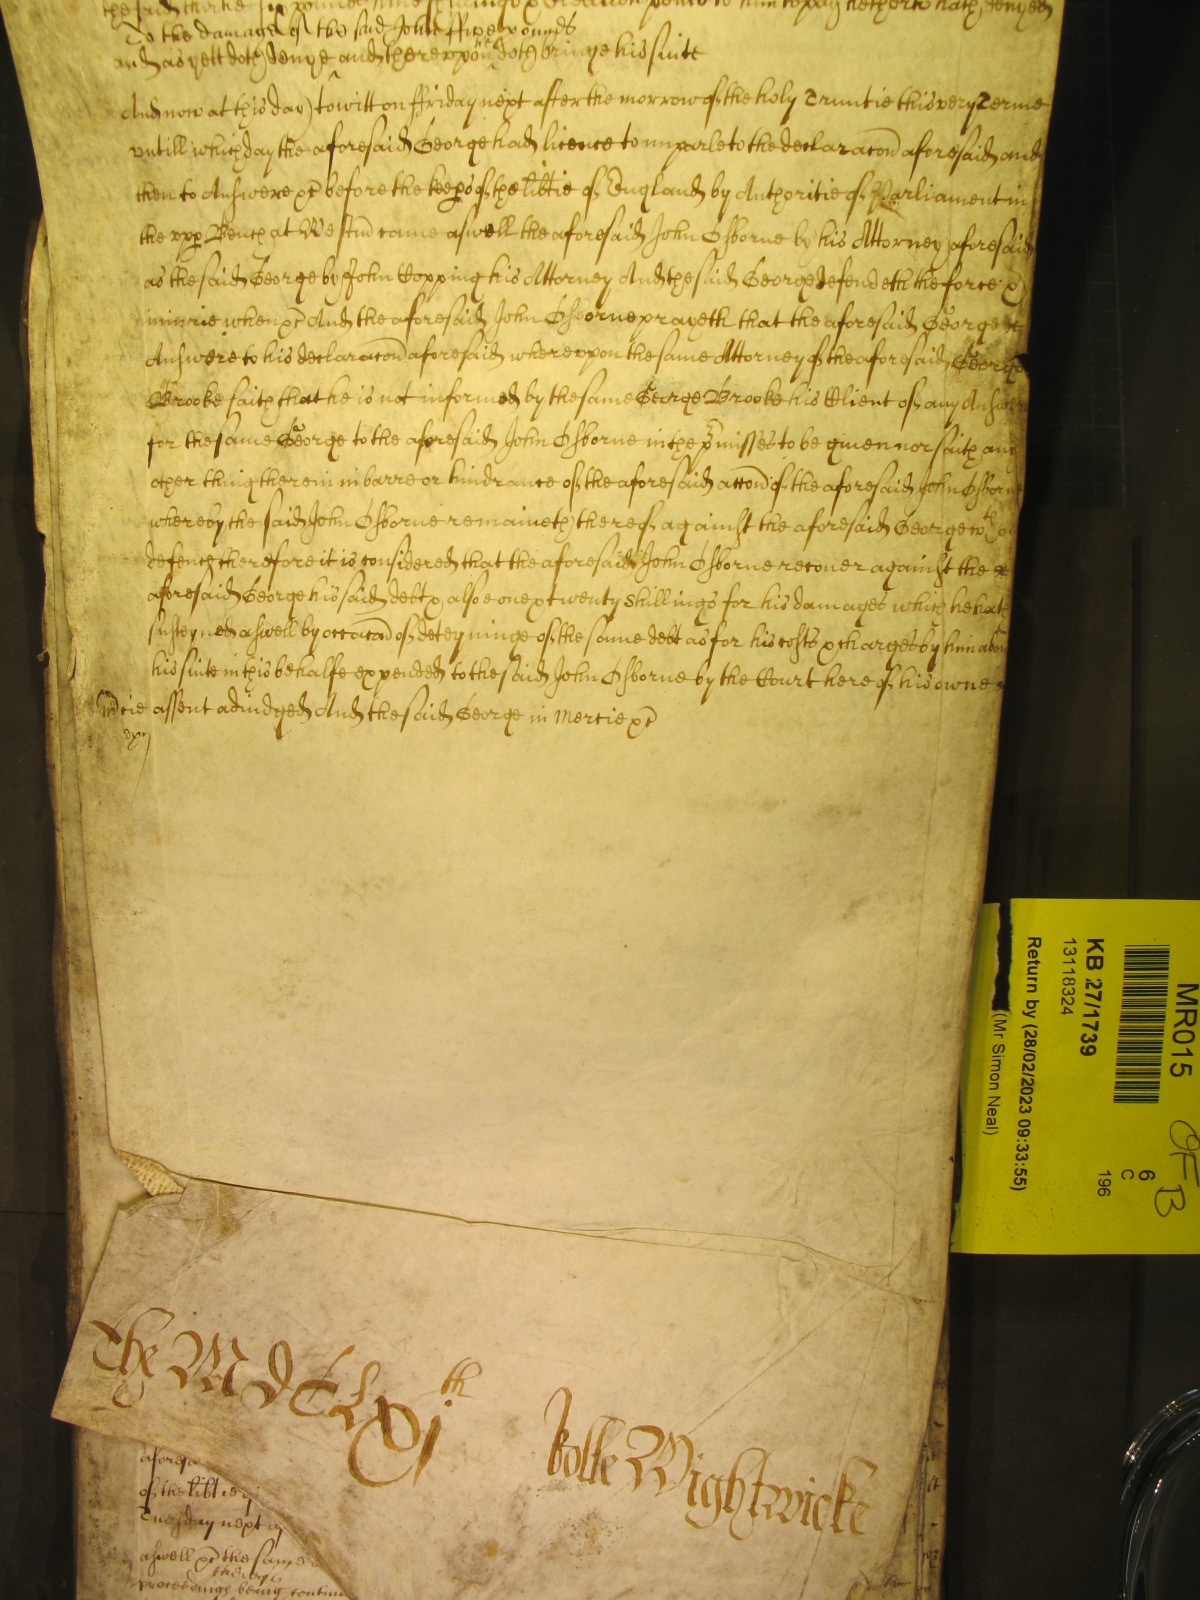 the said thirtie six poundes nine shillings & ... pence to him to pay hetherto hath denyed
To the damage of the said John ffive pounds
and as yett doth denye and thereuppon doth bringe his suite
And now at this day) to witt on ffriday next after the morrow of the holy Trinitie this very Terme
untill which day the aforesaid George had licence to imparle to the declaracon aforesaid and
then to Answere &c before the keeps of the libtie of England by Authoritie of Parliament in
the upp Bench at Westm came aswell the aforesaid John Osborne by his Attorney aforesaid
as the said George by John Copping his Attorney And the said George defendeth the force &
iniurie when &c And the aforesaid John Osborne prayeth that the aforesaid George
Answere to his declaracon aforesaid whereupon the same Attorney of the aforesaid George
Brooke saith that he is not informed by the same George Brooke his Client of any Answere
for the same George to the aforesaid John Osborne in the pmisses to be given nor saith any
other thing therein in barre or hindrance of the aforesaid accon of the aforesaid John Osborne
whereby the said John Osborne remaineth thereof against the aforesaid George wth
defence therefore it is considered that the aforesaid John Osborne recover against the
aforesaid George his said debt & alsoe one & twenty shillings for his damages which he hath
susteyned aswell by occacon of deteyninge of the same debt as for his costs & charges by him about
his suite in this behalfe expended to the said John Osborne by the Court here of his owne
mcie assent adiudged And the said George in Mercie &c
The MDCLXIth
Rolle Wightwicke
of the libtie
Tuesday next
aswell &c the same
proceedings being contin
MR015
KB 27/1739
13118324
Return by (28/02/2023 09:33:55)
(Mr Simon Neal)
6
C
196
OFB